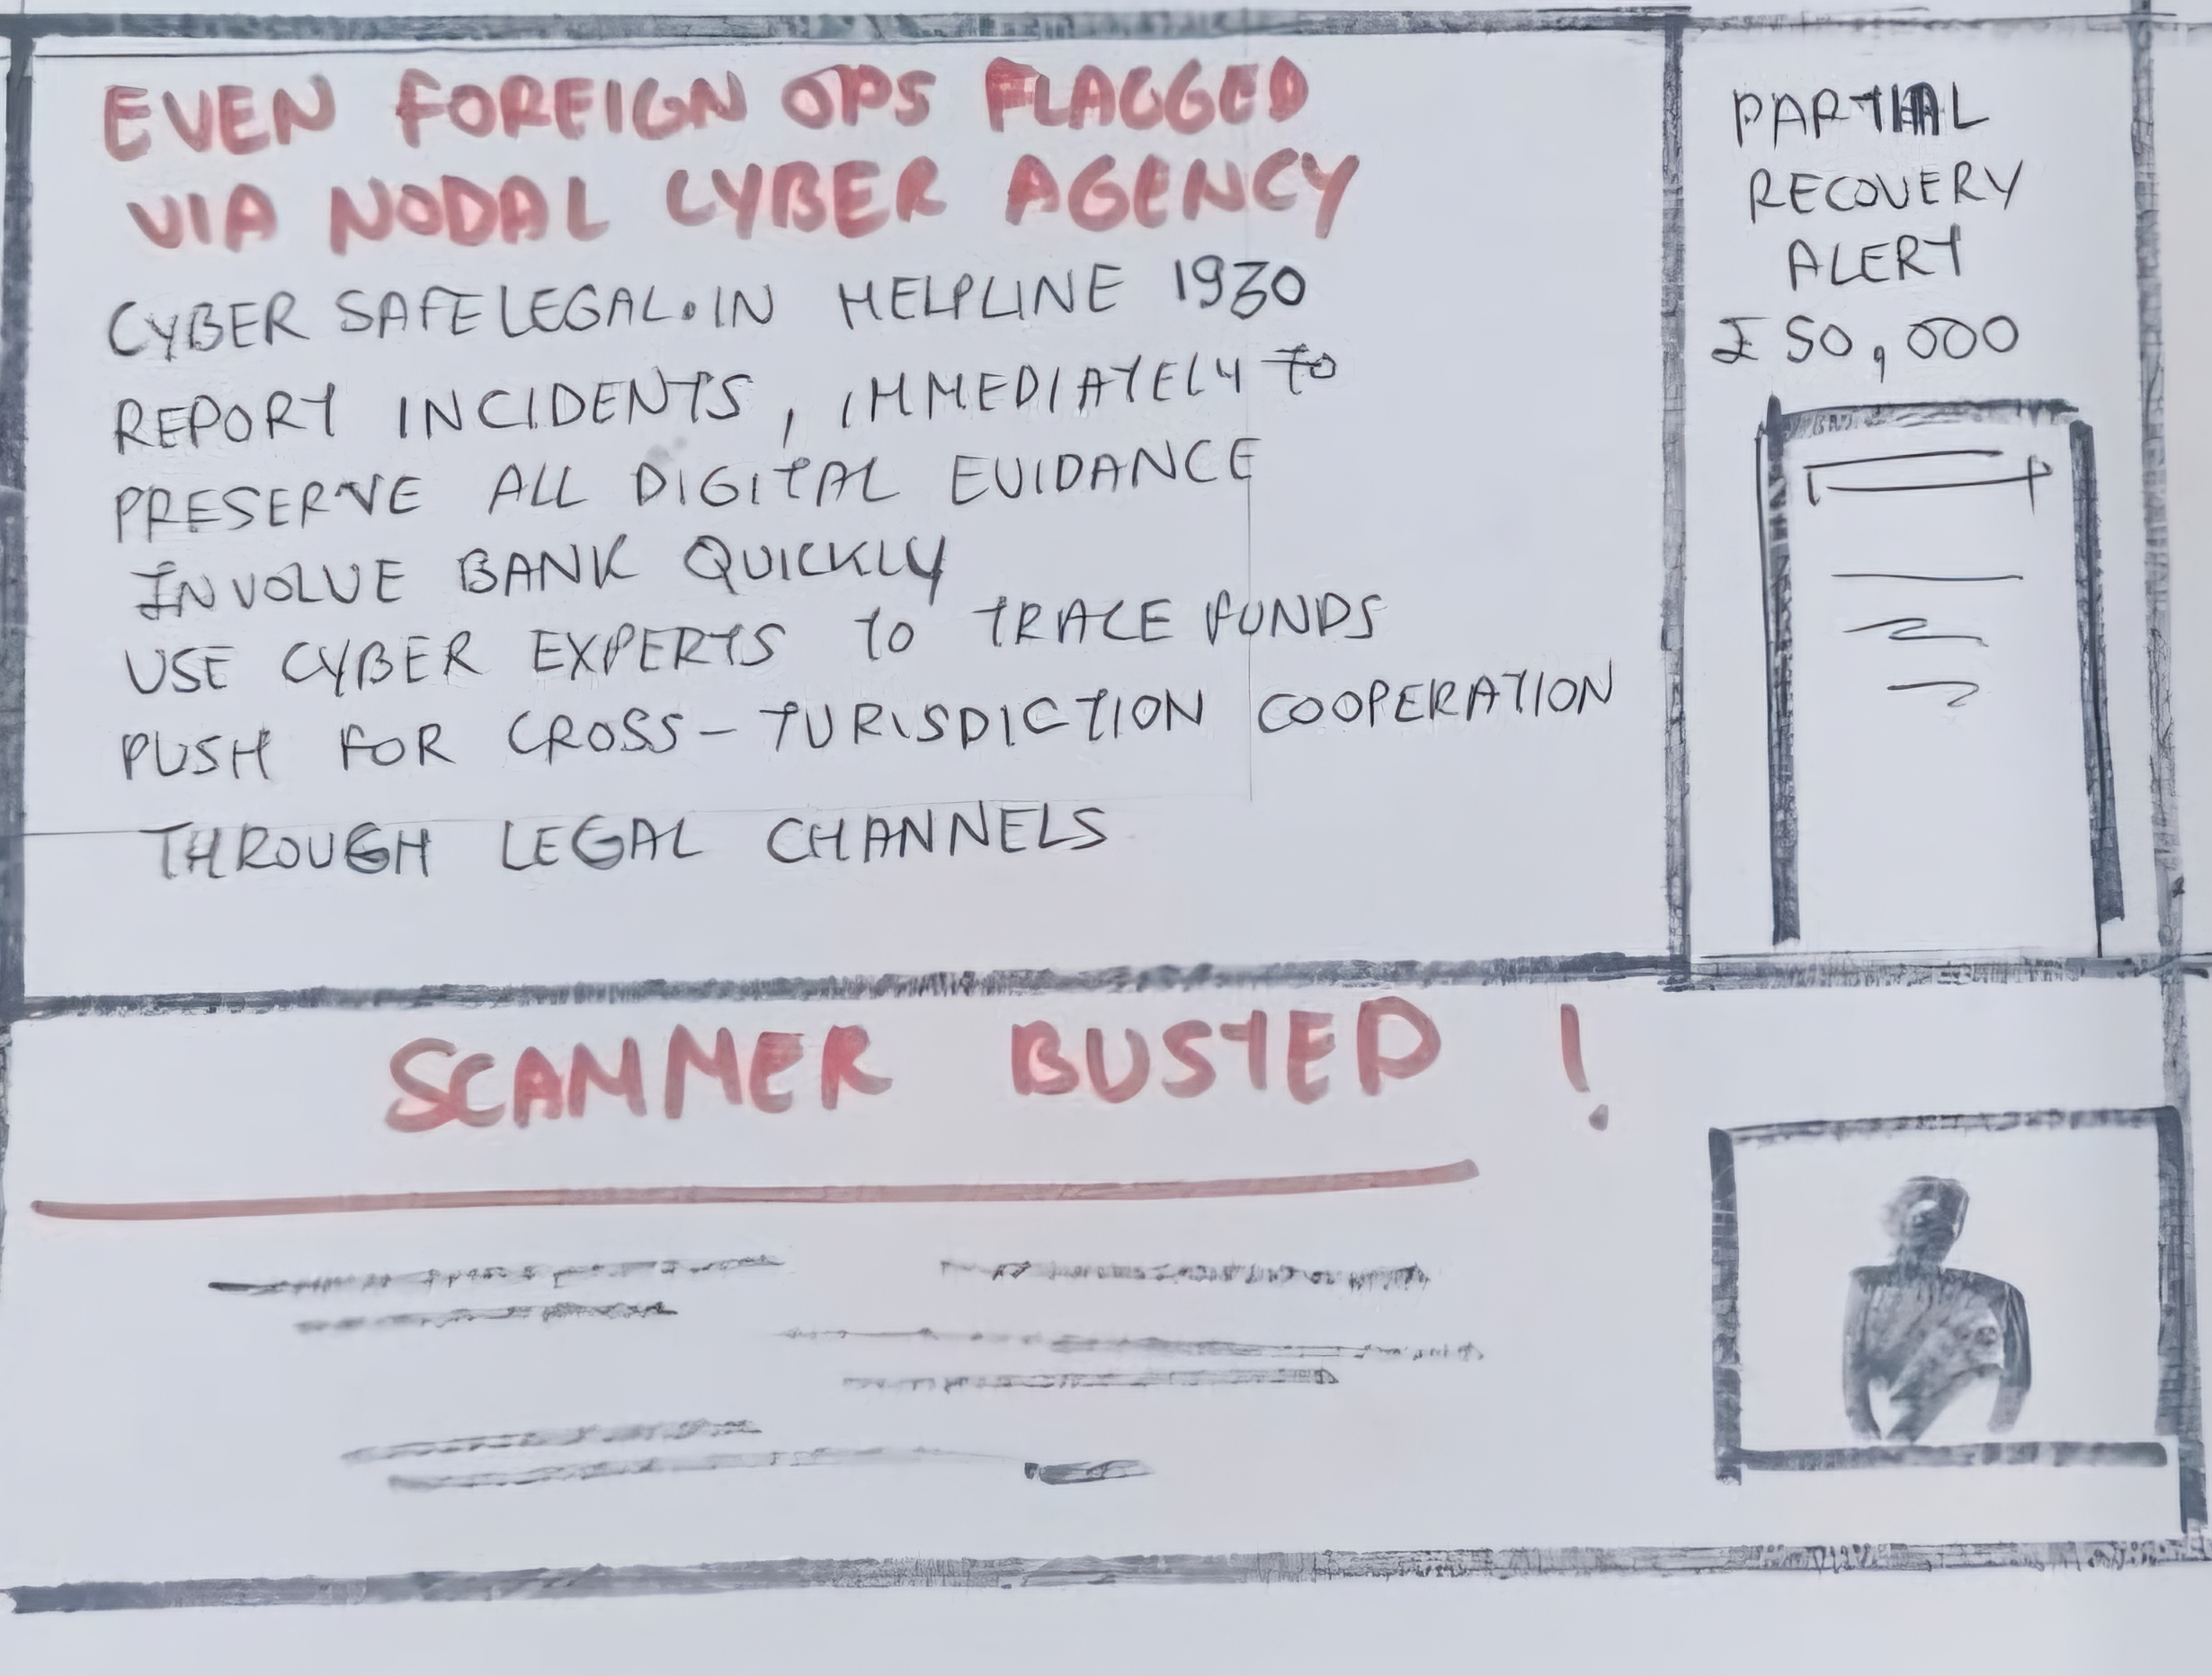 EVEN FOREIGN OPS FLAGGED
VIA NODAL CYBER AGENCY
CYBER SAFELEGAL.IN HELPLINE 1930
REPORT INCIDENTS, IMMEDIATELY TO
PRESERVE ALL DIGITAL EVIDANCE
INVOLVE BANK QUICKLY
USE CYBER EXPERTS TO TRACE FUNDS
PUSH FOR CROSS-JURISDICTION COOPERATION
THROUGH LEGAL CHANNELS
PARTIAL
RECOVERY
ALERT
₹50,000
SCAMMER BUSTED !